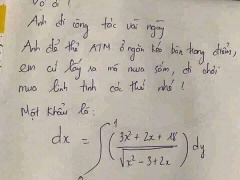 Vợ ơi!
Anh đi công tác vài ngày
Anh để thẻ ATM ở ngăn kéo bàn trang điểm,
em cứ lấy ra mà mua sắm, đi chơi
mua linh tinh các thứ nhé!
Mật khẩu là:
dx = ∫₀¹ ( (3x² + 2x + 18) / √(x² - 3 + 2x) ) dy